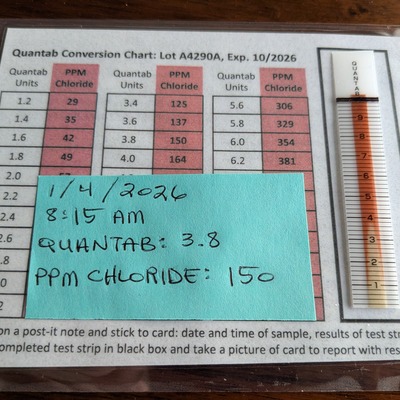 Quantab Conversion Chart: Lot A4290A, Exp. 10/2026
Quantab Units PPM Chloride Quantab Units PPM Chloride Quantab Units PPM Chloride
1.2 29 3.4 125 5.6 306
1.4 35 3.6 137 5.8 329
1.6 42 3.8 150 6.0 354
1.8 49 4.0 164 6.2 381
2.0
2.2
2.4
2.6
2.8
1/4/2026
8:15 AM
QUANTAB: 3.8
PPM CHLORIDE: 150
QUANTAB
9
8
7
6
5
4
3
2
1
on a post-it note and stick to card: date and time of sample, results of test
completed test strip in black box and take a picture of card to report with